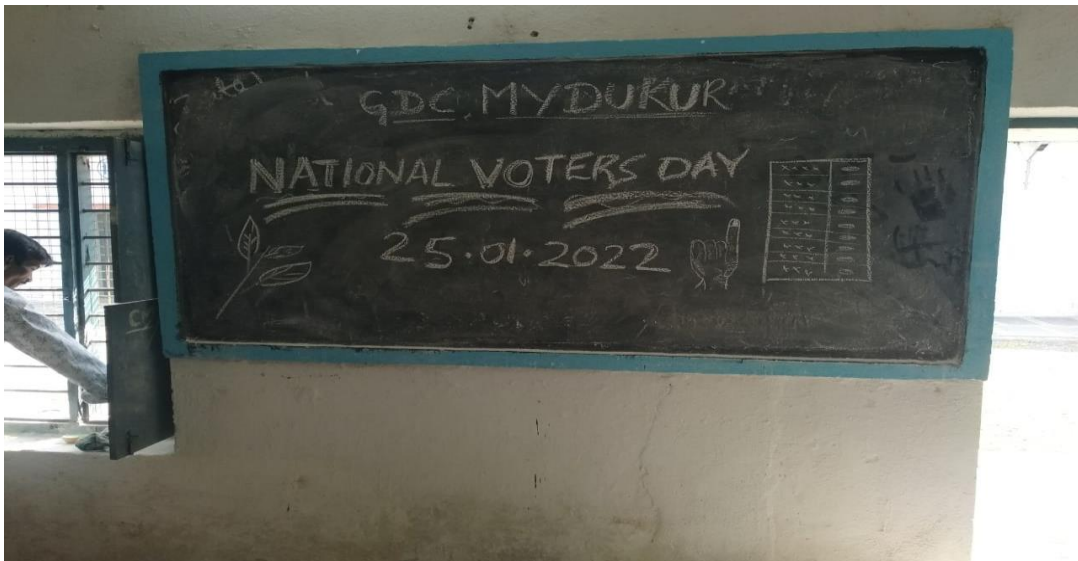 GDC MYDUKUR
NATIONAL VOTERS DAY
25.01.2022